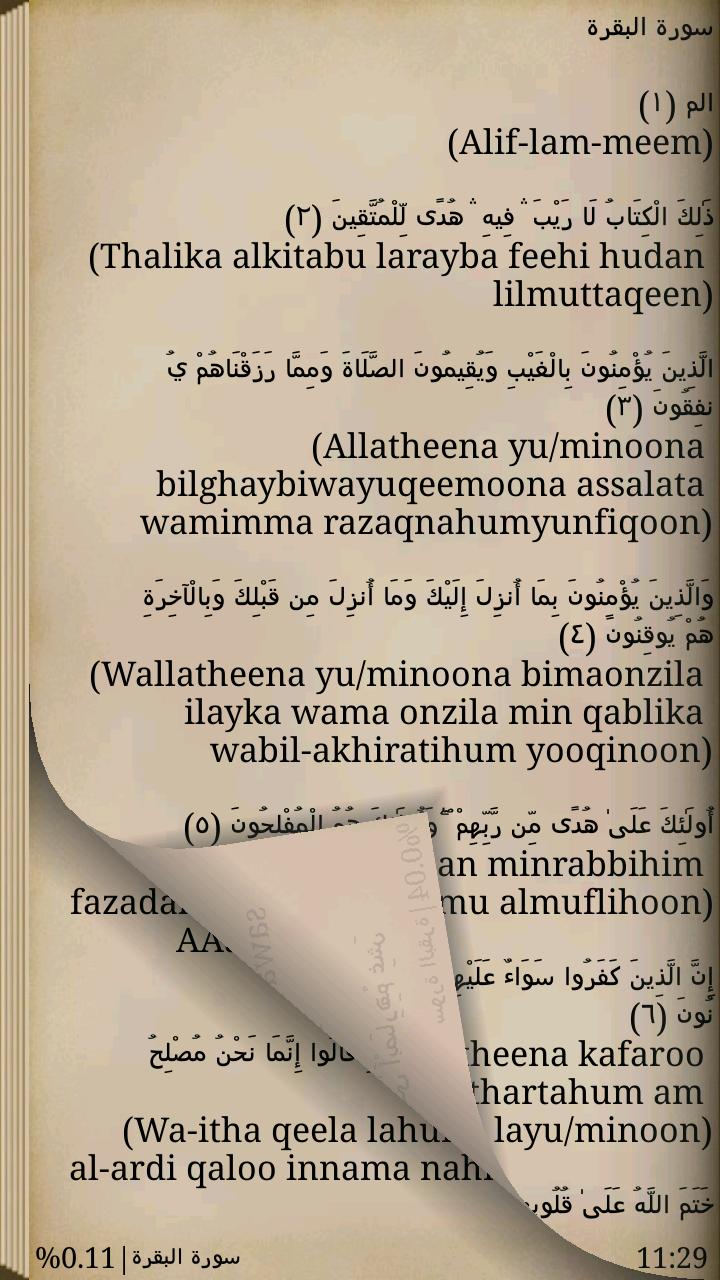 سورة البقرة
الم (١)
(Alif-lam-meem)
ذَٰلِكَ الْكِتَابُ لَا رَيْبَ ۛ فِيهِ ۛ هُدًى لِّلْمُتَّقِينَ (٢)
(Thalika alkitabu larayba feehi hudan
lilmuttaqeen)
الَّذِينَ يُؤْمِنُونَ بِالْغَيْبِ وَيُقِيمُونَ الصَّلَاةَ وَمِمَّا رَزَقْنَاهُمْ يُ
نفِقُونَ (٣)
(Allatheena yu/minoona
bilghaybiwayuqeemoona assalata
wamimma razaqnahumyunfiqoon)
وَالَّذِينَ يُؤْمِنُونَ بِمَا أُنزِلَ إِلَيْكَ وَمَا أُنزِلَ مِن قَبْلِكَ وَبِالْآخِرَةِ
هُمْ يُوقِنُونَ (٤)
(Wallatheena yu/minoona bimaonzila
ilayka wama onzila min qablika
wabil-akhiratihum yooqinoon)
أُولَٰئِكَ عَلَىٰ هُدًى مِّن رَّبِّهِمْ ۖ هُمُ الْمُفْلِحُونَ (٥)
an minrabbihim
mu almuflihoon)
إِنَّ الَّذِينَ كَفَرُوا سَوَاءٌ
نُونَ (٦)
قَالُوا إِنَّمَا نَحْنُ مُصْلِحُ
theena kafaroo
thartahum am
(Wa-itha qeela layu/minoon)
al-ardi qaloo innama
خَتَمَ اللَّهُ عَلَىٰ
%0.11|سورة البقرة 11:29